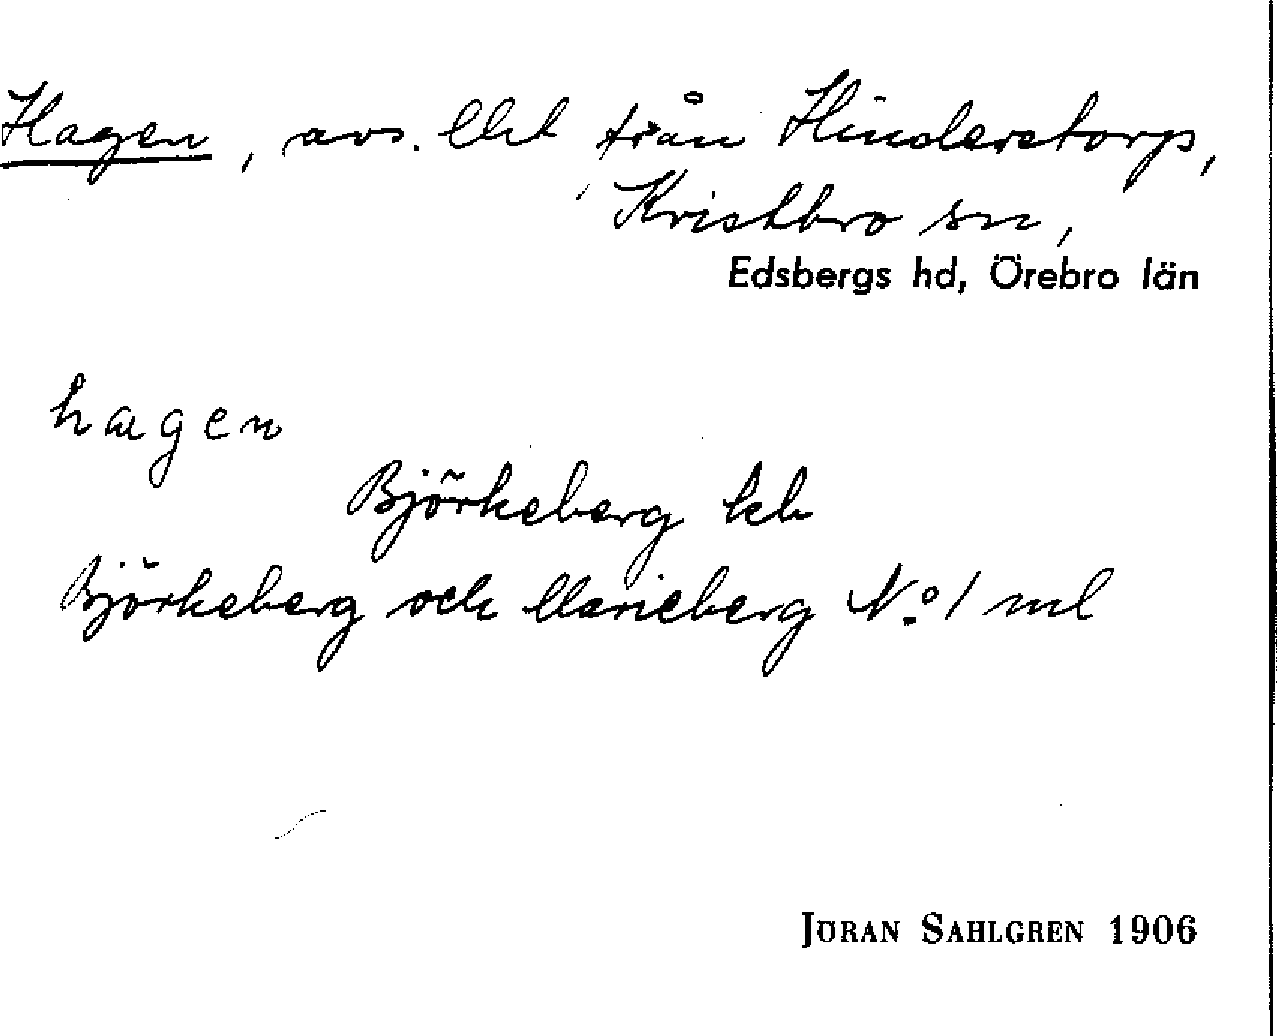 Hagen, avs. lht från Hinderstorp,
Kvistbro sn,
Edsbergs hd, Örebro län
hagen
Björkeberg kb
Björkeberg och Marieberg No 1 ml
JÖRAN SAHLGREN 1906